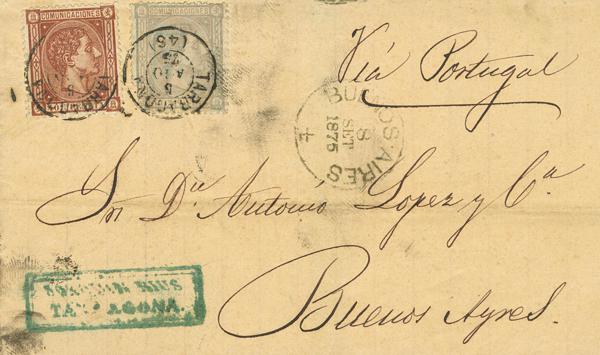 COMUNICACIONES
COMUNICACIONES
TARRAGONA
TARRAGONA
(46)
5
AGO
75
Via Portugal
BUENOS AIRES
8
SET
1875
Sr. Dn. Antonio Lopez y Ca.
Buenos Ayres.
RIUS
TARRAGONA.